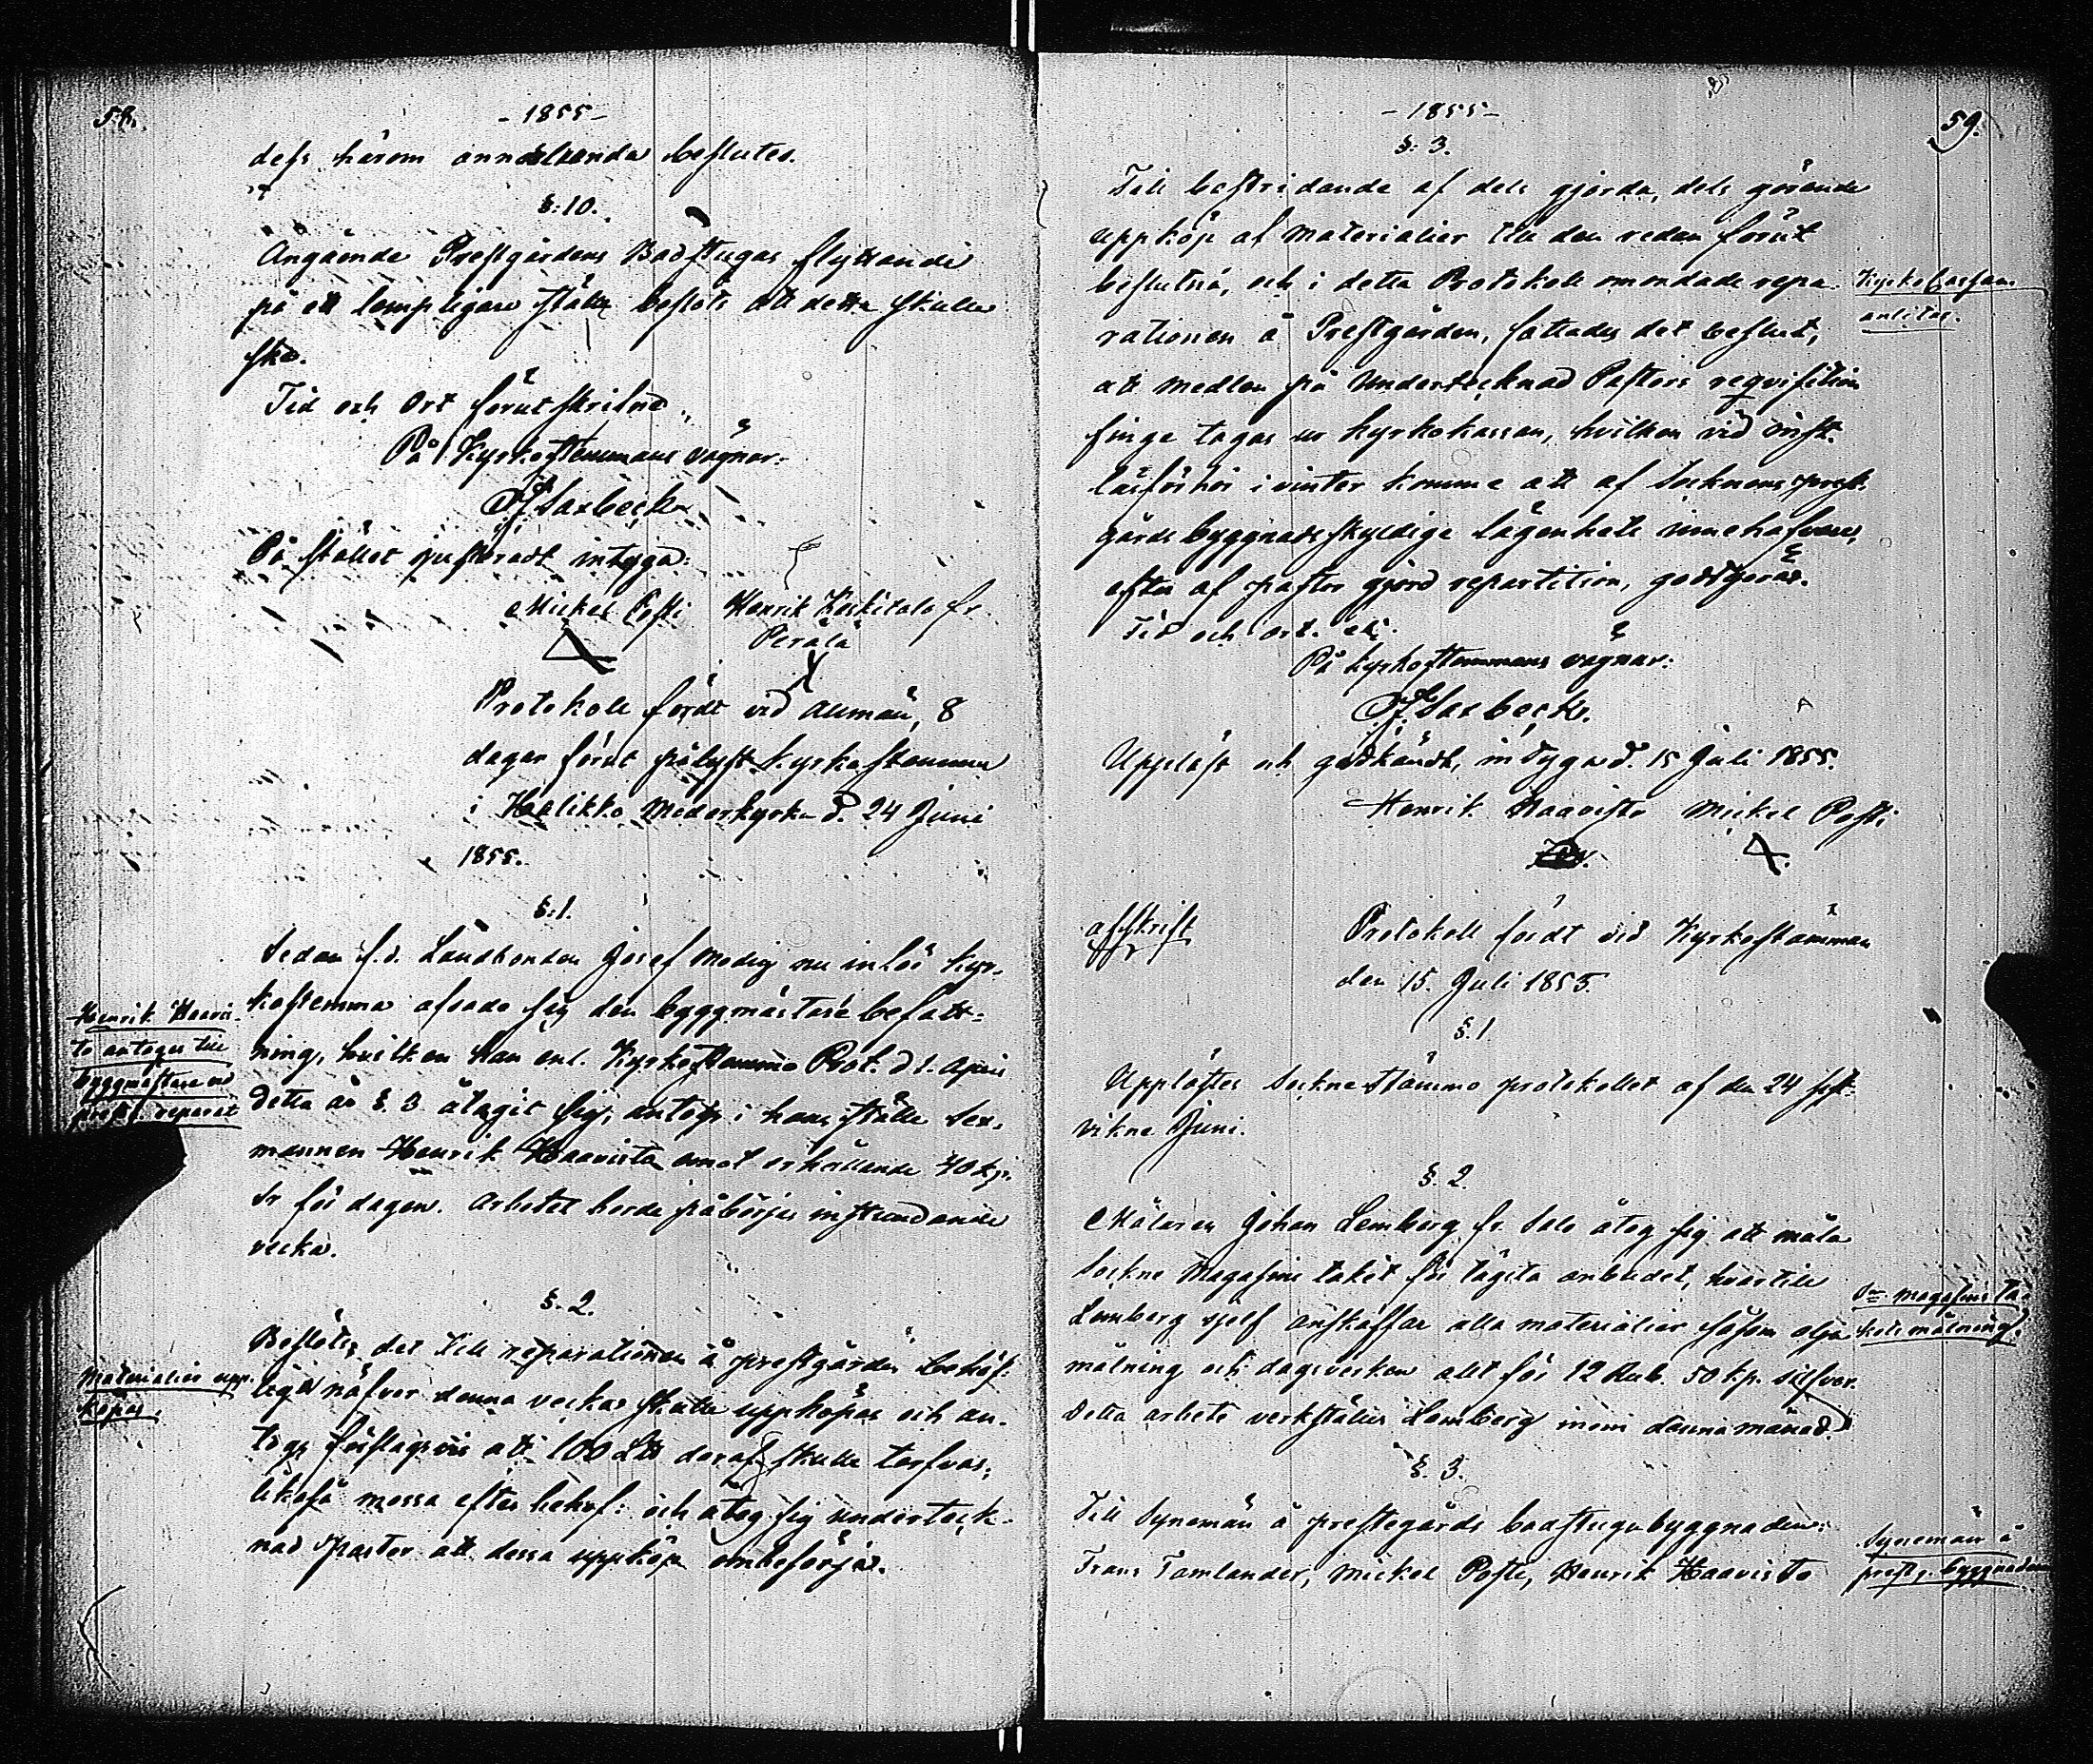 58.
- 1855 -
dess härom annalkande beslutes.
§: 10.
Angående Prestgårdens Badstugas flyttande
på ett lämpligare ställe beslöts att detta skulle
ske.
Tid och Ort förutskrifne
På Kyrkostemmans vägnar:
Saxbeck
På stället justeradt intyga:
Mickel Posti Henrik Koskitalo fr.
Perälä
Protokoll fördt vid allmän, 8
dagar förut pålyst Kyrkostemma
i Halikko Moderkyrka d. 24 Juni
1855.
§: 1.
Henrik Haavis-
to antoges till
byggmästare vid
prestg. reparat
Sedan f. d. Landbonden Josef Modig nu inför Kyr-
kostemma afsade sig den byggmästare befatt-
ning, hvilken han enl. Kyrkostemmo Prot. d 1. April
detta år §. 3 åtagit sig, antogs i hans ställe Sex-
mannen Henrik Haavisto emot erhållande 40 kp.
Sr för dagen. Arbetet borde påbörjas instundande
vecka.
§. 2.
Materialier upp-
köpas.
Beslöts, det till reparationen å prestgården behöf-
lige näfver denna vecka skulle uppköpas och an-
togs förslagsvis att 100 L℔ deraf skulle tarfvas;
likaså mossa efter behof: och åtog sig underteck-
nad Pastor att dessa uppköp ombesörja.
- 1855 -
59.
§: 3.
Till bestridande af dels gjorda, dels görande
uppköp af materialier till den redan förut
beslutna, och i detta Protokoll omordade repa-
rationen å Prestgården, fattades det beslut,
att medlen på Undertecknad Pastors reqvisition
finge tagas ur kyrkokassan, hvilken vid inst.
läsförhör i vinter komme att af Socknens prest-
gårds byggnadsskyldige lägenhets innehafvare,
efter af pastor gjord repartition, godtgöras.
Kyrkokassan
anlitas.
Tid och ort.
På Kyrkostemmans vägnar:
Saxbeck.
Uppläst och godkändt, intyga d. 15 Juli 1855.
Henrik Haavisto Mickel Posti
afskrift
Protokoll fördt vid Kyrkostämman
den 15. Juli 1855.
§. 1
Upplästes Sockne Stämmo protokollet af den 24 sist-
vikne Juni.
§. 2.
Målaren Johan Lemberg fr. Salo åtog sig att måla
Sockne Magasins taket för lägsta anbudet, hvartill
Lemberg sjelf anskaffar alla materialier såsom olja
målning och dagsverken allt för 12 Rub. 50 kp. silfver.
Detta arbete verkställer Lemberg inom denna månad.
Sne magasins ta-
kets målning.
§. 3.
Till Synemän å prestegårds baastugubyggnaden:
Frans Tamlander, Mickel Posti, Henrik Haavisto
Synemän å
prestg. byggnaden